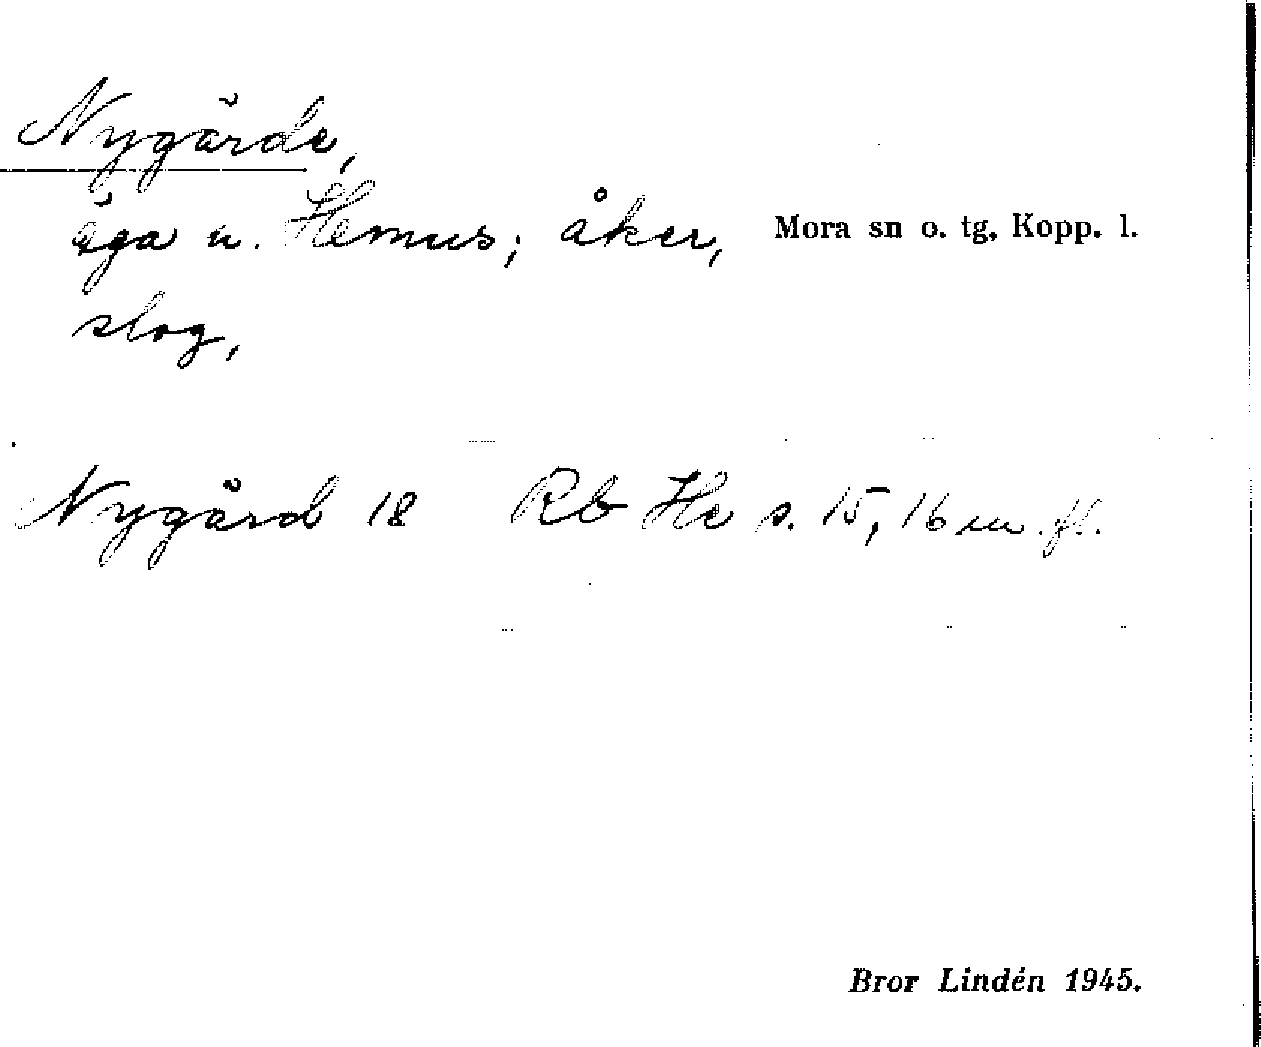 Nygärde,
äga u. Hemus; åker, Mora sn o. tg, Kopp. l.
slog,
Nygård 18 Rb He s. 15, 16 m. fl.
Bror Lindén 1945.